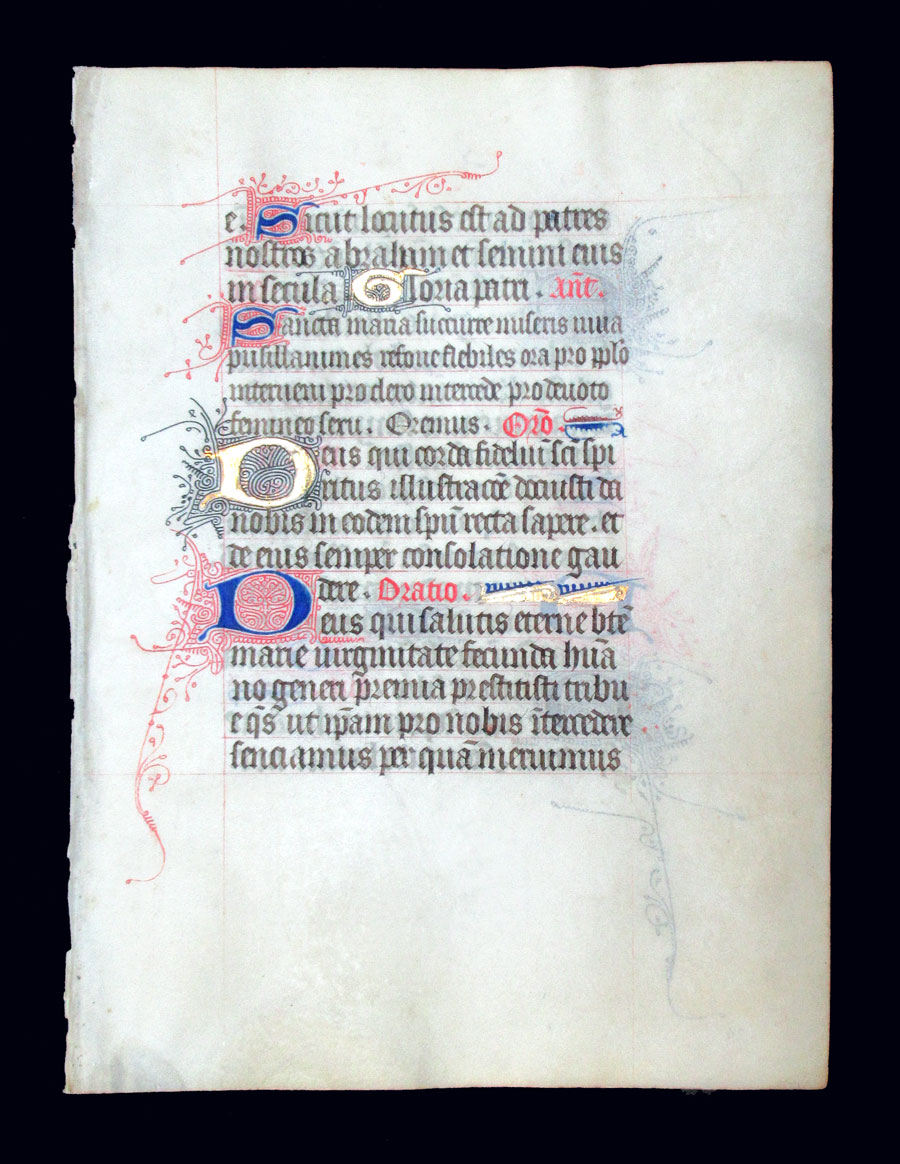 e. Sicut locutus est ad patres
nostros abraham et semini eius
in secula Gloria patri. Añt.
Sancta maria succurre miseris iuua
pusillanimes refoue flebiles ora pro pplo
interueni pro clero intercede pro deuoto
femineo sexu. Oremus. Orõ.
Deus qui corda fideliũ sci spi
ritus illustracõe docuisti da
nobis in eodem spũ recta sapere. et
de eius semper consolatione gau
dere. Oratio.
Deus qui salutis eterne btẽ
marie uirginitate fecunda huã
no generi premia prestitisti tribu
e qs ut ipam pro nobis ĩtercedere
senciamus per quã meruimus